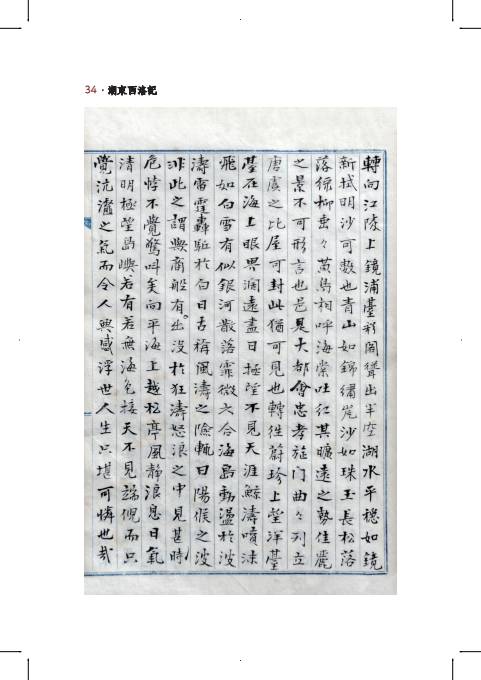 34 · 湖東西洛記
轉向江陵上鏡浦臺彩閣聳出半空湖水平穩如鏡
新拭明沙可數也青山如錦繡崑沙如珠玉長松落
落綠柳垂々黃鳥相呼海棠吐紅其曠遠之勢佳麗
之景不可形言也邑是大都會忠孝旌門曲々列立
唐虞之比屋可封此猶可見也轉往蔚珍上望洋臺
臺在海上眼界濶遠盡日極望不見天涯鯨濤噴沫
飛如白雪有似銀河散落霏微六合海島動盪於波
濤雷霆轟駈於白日古稱風濤之險輒曰陽侯之波
非此之謂歟商船有出沒於狂濤怒浪之中見甚時
危悸不覺驚叫矣向平海上越松亭風靜浪息日氣
清明極望島嶼若有若無海色接天不見端倪而只
覺沆瀣之氣而令人興感浮世人生只堪可憐也哉